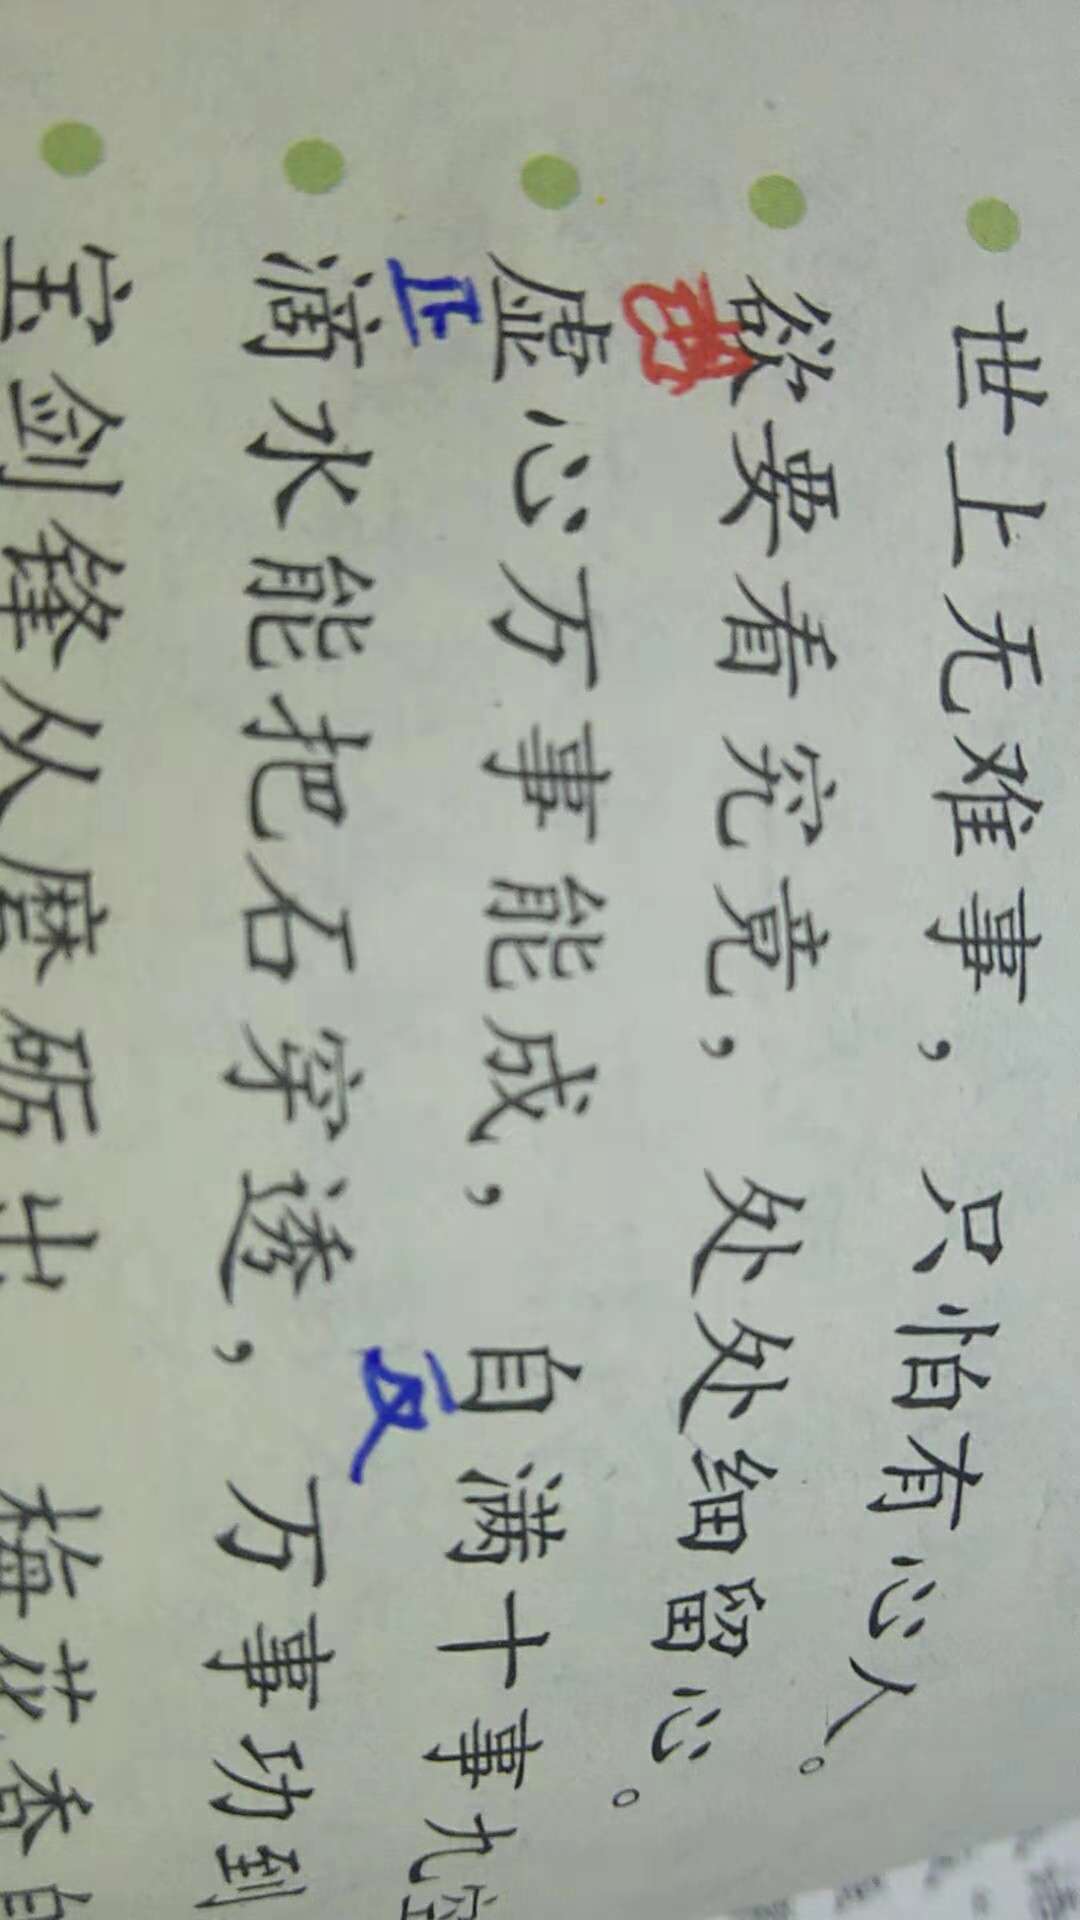 世上无难事，只怕有心人。
欲要看究竟，处处细留心。
虚心万事能成，自满十事九空
正 反
滴水能把石穿透，万事功到
宝剑锋从磨砺出 梅花香自